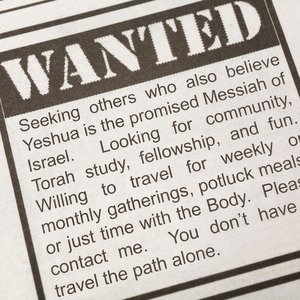 WANTED
Seeking others who also believe
Yeshua is the promised Messiah of
Israel. Looking for community,
Torah study, fellowship, and fun.
Willing to travel for weekly or
monthly gatherings, potluck meals
or just time with the Body.
contact me. You don't have
travel the path alone.